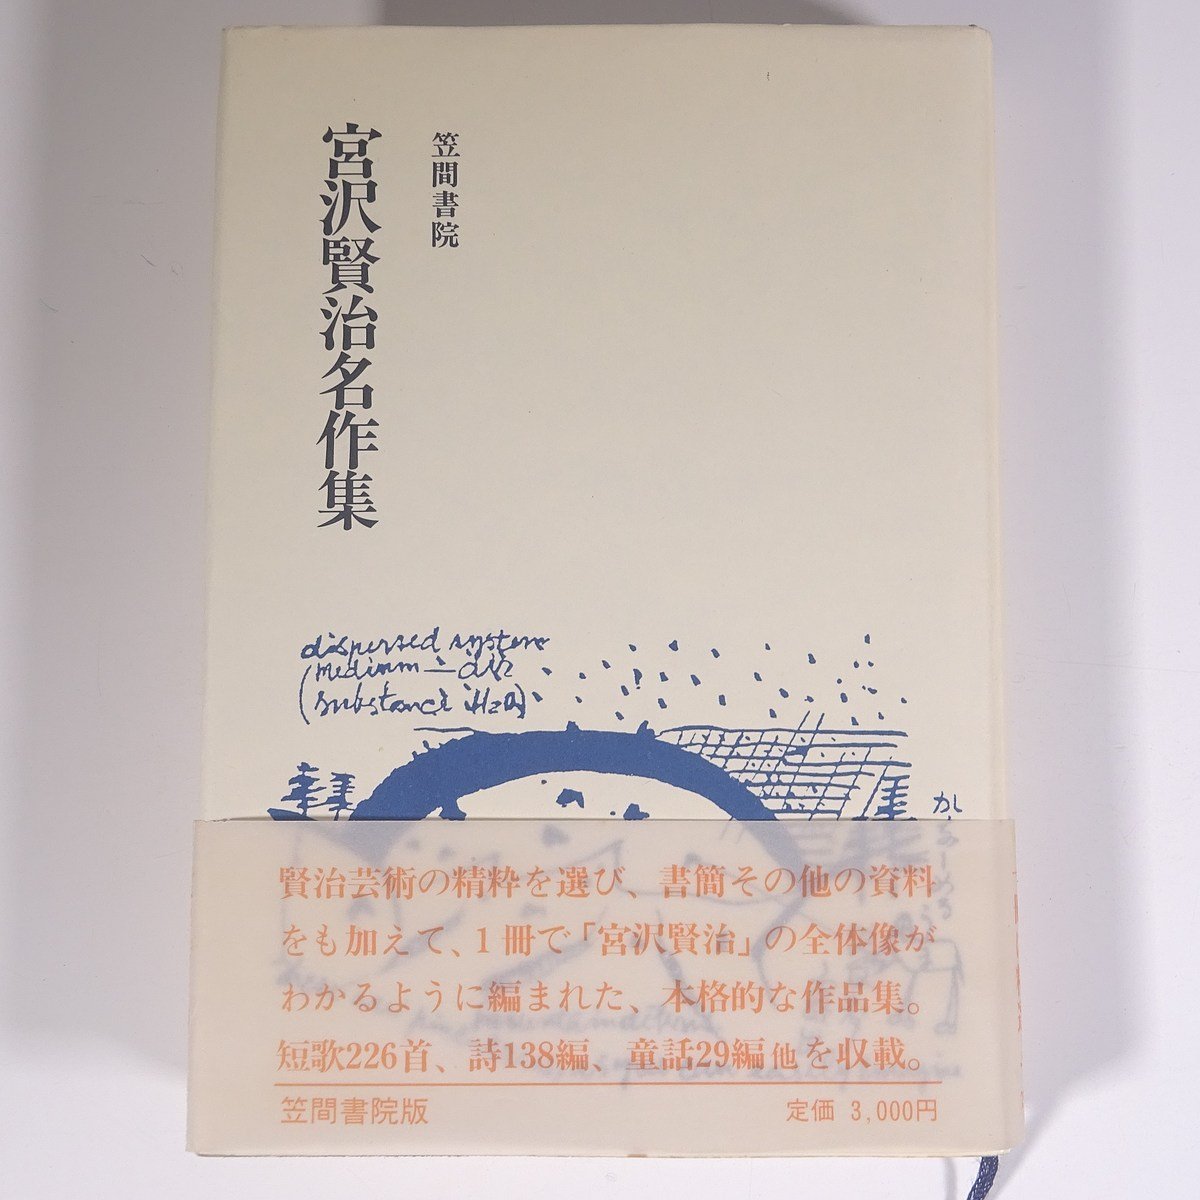 笠間書院
宮沢賢治名作集
dispersed system
(medium — air
(substance H2O)
賢治芸術の精粋を選び、書簡その他の資料
をも加えて、1冊で「宮沢賢治」の全体像が
わかるように編まれた、本格的な作品集。
短歌226首、詩138編、童話29編他を収載。
笠間書院版
定価 3,000円